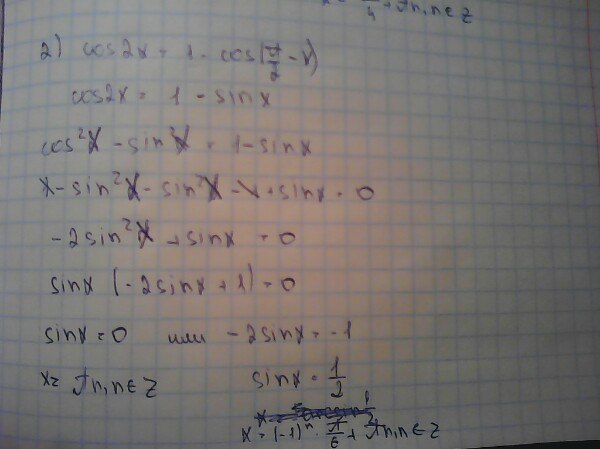 π/4 + πn, n ∈ Z
2) cos2x = 1 - cos(π/2 - x)
cos2x = 1 - sinx
cos²x - sin²x = 1 - sinx
1 - sin²x - sin²x - 1 + sinx = 0
-2sin²x + sinx = 0
sinx (-2sinx + 1) = 0
sinx = 0 или -2sinx = -1
x = πn, n ∈ Z sinx = 1/2
x = (-1)ⁿ · π/6 + πn, n ∈ Z